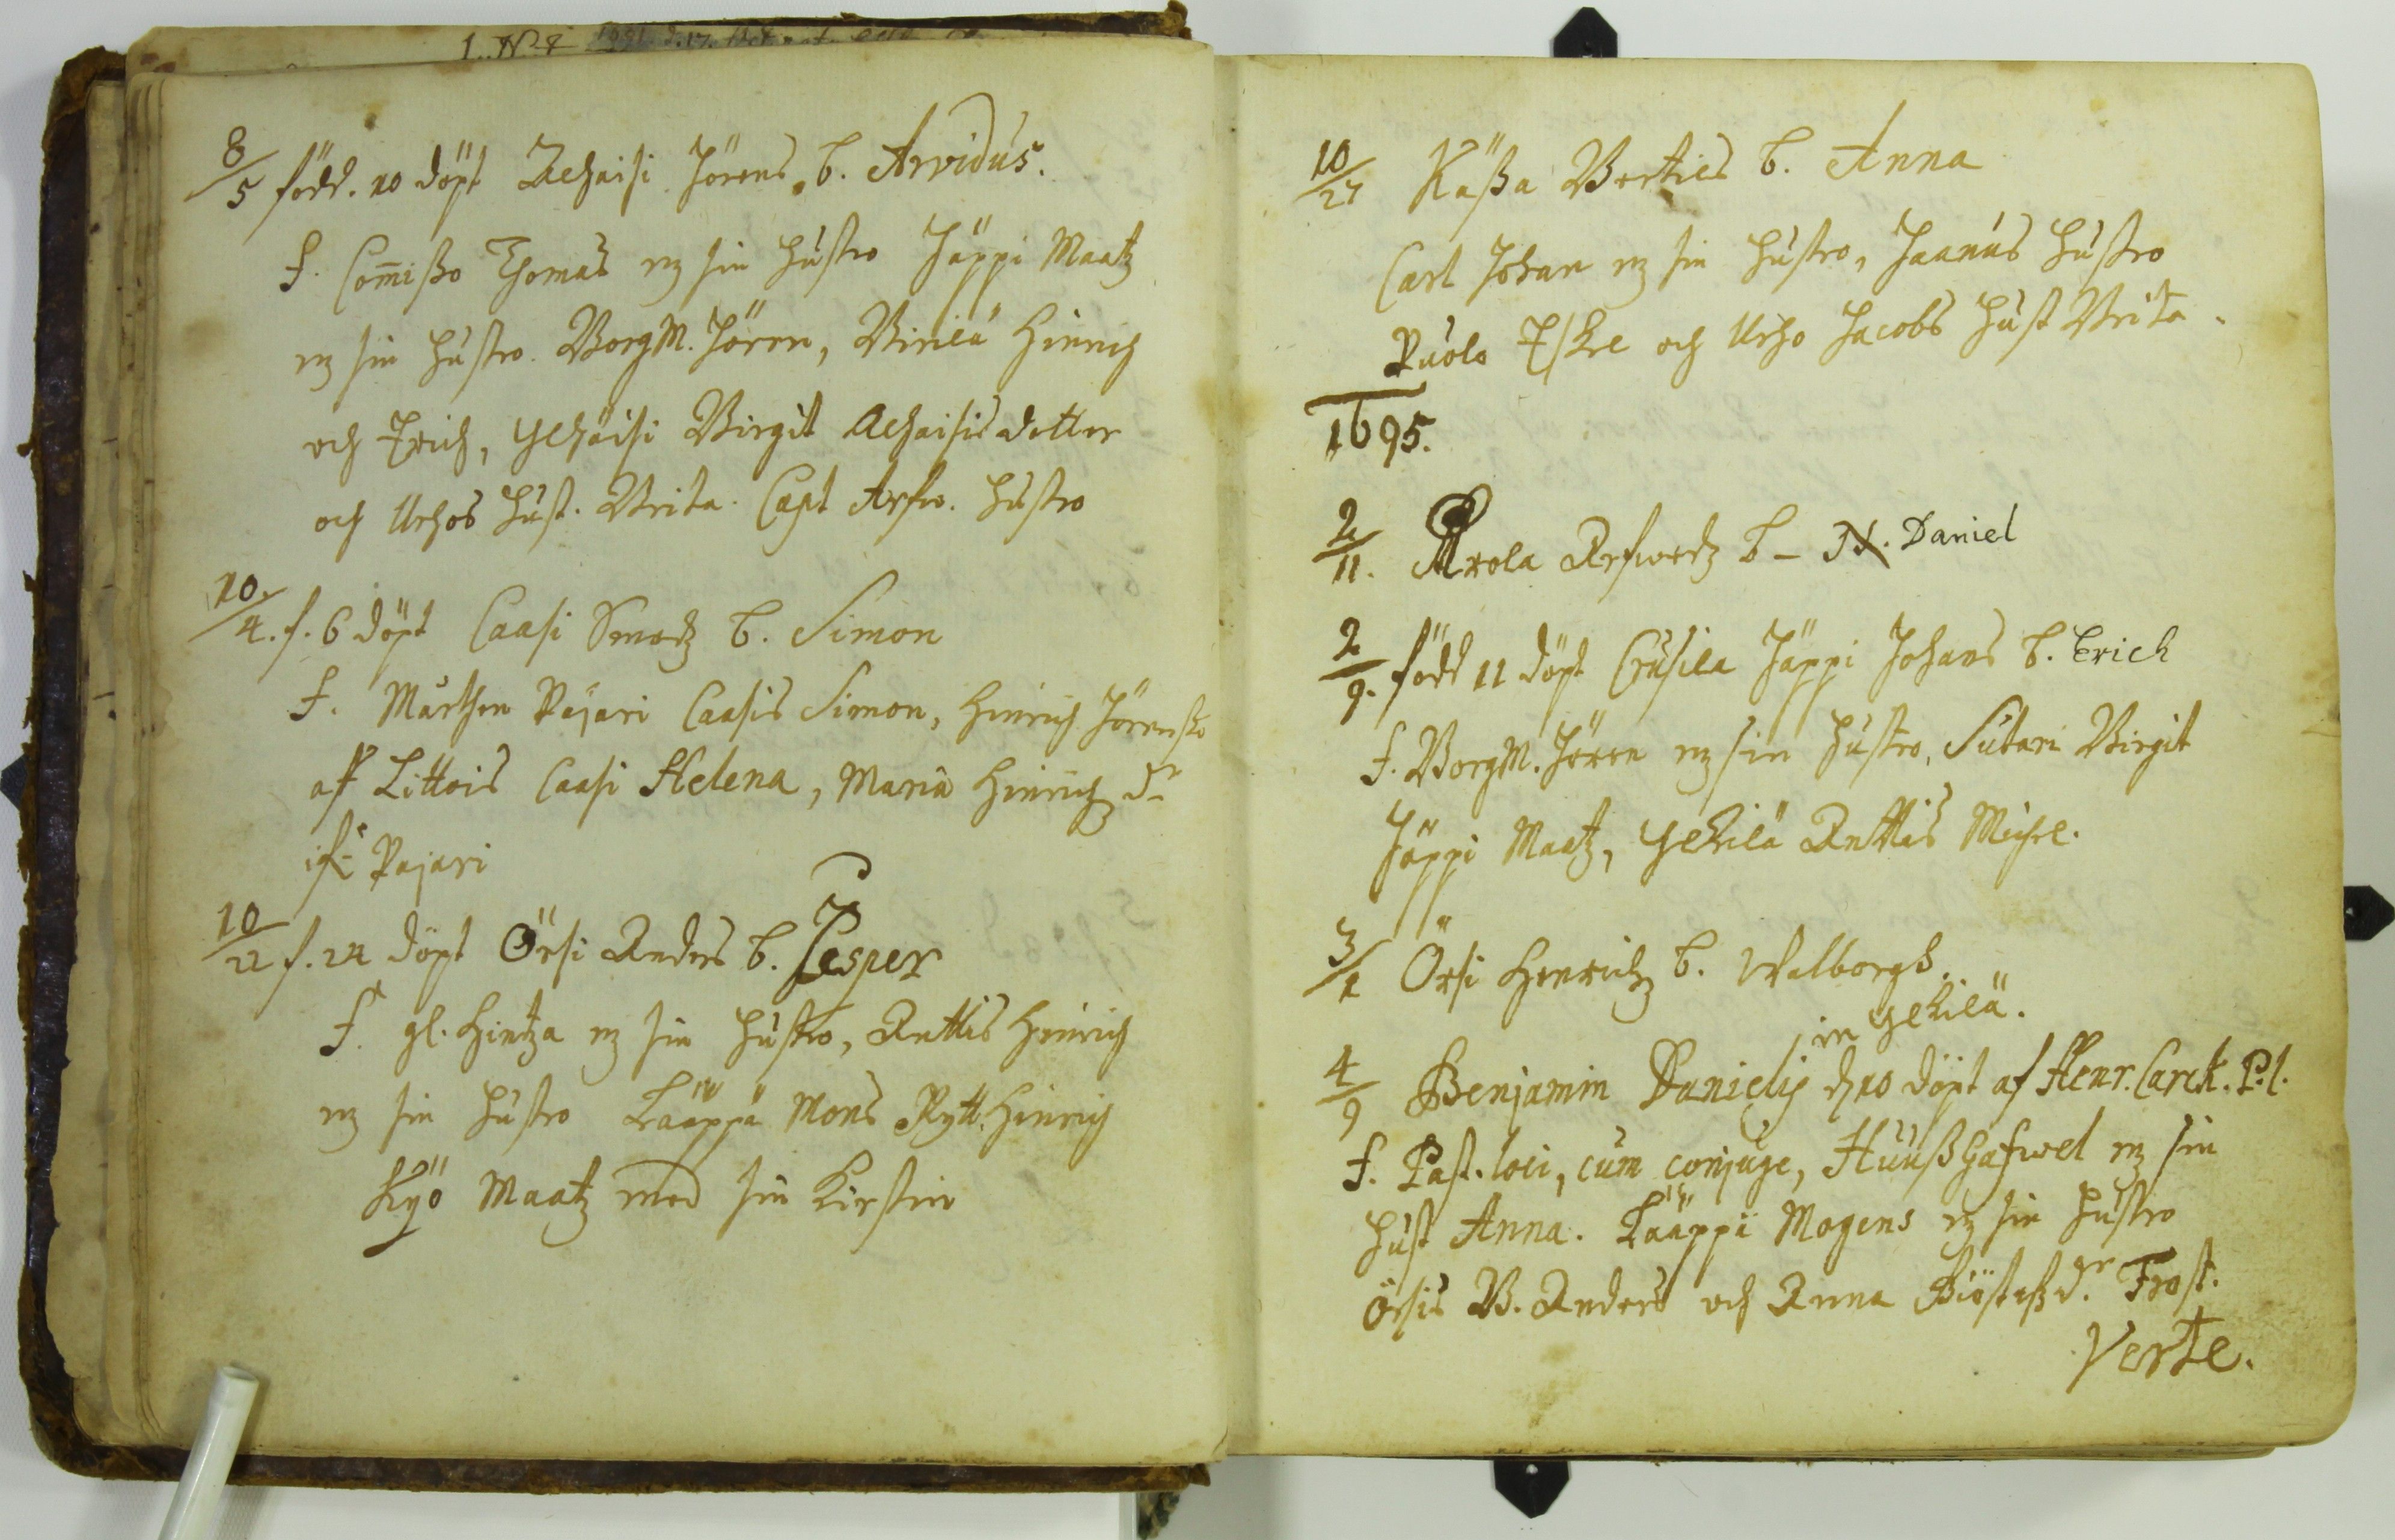 8/5 född. 10 döpt Achaisi Jörens b. Arvidus.
f. Com̄ißo Thomas m sin hustro Jäppi Maatz
m sin hustro. BorgM. Jören, Virilä Hinrich
och Erich, Ylhäisi Birgit Achaisis dotter
och Urhos hust. Brita. Capt Arfw. hustro
10/4. f. 6 döpt Caasi Smedz b. Simon
f. Mårthen Pajari Caasis Simon, Hinrich Jörensso
af Littois Caasi Helena, Maria Hinrichz dr
if. Pajari
10/22 f. 24 döpt Örsi Anders b. Jesper
f. gl. Hintza m sin hustro, Anttis Hinrich
m sin hustro Lääppä Mons Rytt. Hinrich
Kyö Maatz med sin Kirstin
10/27 Käßa Berties b. Anna
Carl Johan m sin hustro, Jaanus hustro
Puolo Eskel och Urho Jacobs hust Brita.
1695.
2/11. Arola Arfwedz b - N. Daniel
2/9. född 11 döpt Crusila Jäppi Johans b. Erich
f. BorgM. Jören m sin hustro, Sutari Birgit
Jäppi Maatz, Ylkilä Anttis Michel.
3/1 Örsi Henrichz b. Walborgh.
in Ylkilä.
4/9 Benjamin Danielis d 10 döpt af Henr. Carck. P. l.
f. Past. loci, cum conjuge, Huußhafwel m sin
hust Anna. Lääppä Mogens m sin hustro
Örsis B. Anders och Anna dr. Frost.
Verte.